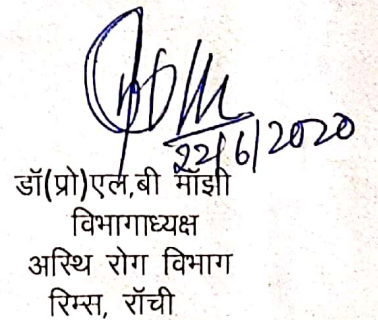 22/6/2020
डॉ(प्रो)एल,बी मॉझी
विभागाध्यक्ष
अस्थि रोग विभाग
रिम्स, रॉची